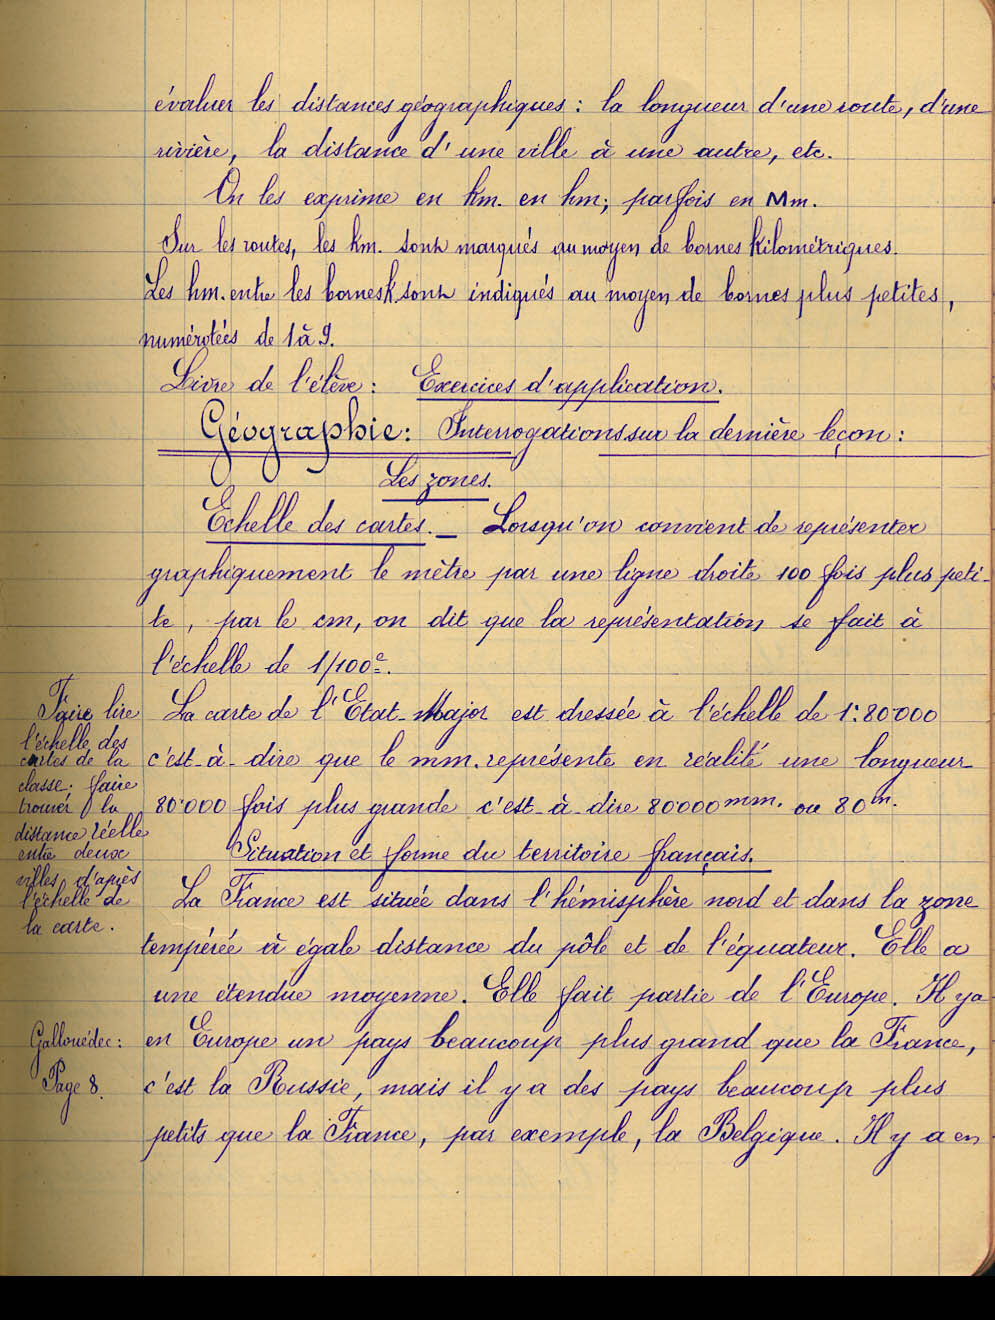 évaluer les distances géographiques : la longueur d'une route, d'une
rivière, la distance d'une ville à une autre, etc.
On les exprime en km. en hm; parfois en Mm.
Sur les routes, les km. sont marqués au moyen de bornes kilométriques.
Les hm. entre les bornes k. sont indiqués au moyen de bornes plus petites,
numérotées de 1 à 9.
Livre de l'élève : Exercices d'application.
Géographie : Interrogations sur la dernière leçon :
Les zones.
Echelle des cartes. _ Lorsqu'on convient de représenter
graphiquement le mètre par une ligne droite 100 fois plus peti-
te, par le cm, on dit que la représentation se fait à
l'échelle de 1/100e.
La carte de l'Etat-Major est dressée à l'échelle de 1:80'000
c'est-à-dire que le mm. représente en réalité une longueur
80'000 fois plus grande c'est-à-dire 80'000 mm. ou 80 m.
Situation et forme du territoire français.
La France est située dans l'hémisphère nord et dans la zone
tempérée à égale distance du pôle et de l'équateur. Elle a
une étendue moyenne. Elle fait partie de l'Europe. Il y a
en Europe un pays beaucoup plus grand que la France,
c'est la Russie, mais il y a des pays beaucoup plus
petits que la France, par exemple, la Belgique. Il y a en
Faire lire
l'échelle des
cartes de la
classe; faire
trouver la
distance réelle
entre deux
villes, d'après
l'échelle de
la carte.
Gallouédec :
Page 8.